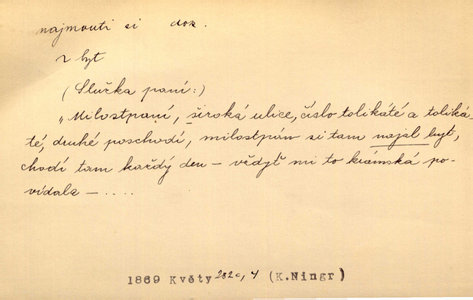 najmouti si dok.
2 byt
(Služka paní:)
„Milostpaní, široká ulice, číslo tolikáté a toliká-
té, druhé poschodí, milostpán si tam najal byt,
chodí tam každý den – vědyť mi to krámská po-
vídala – ....
1869 Květy 282a,4 (K.Ningr)